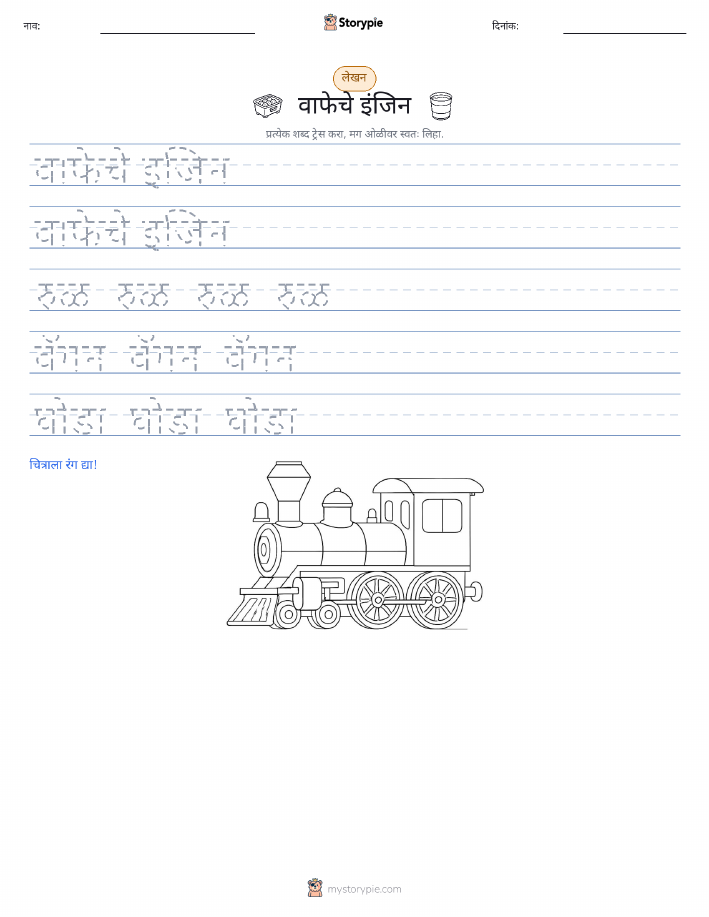 नाव:
Storypie
दिनांक:
लेखन
वाफेचे इंजिन
प्रत्येक शब्द ट्रेस करा, मग ओळीवर स्वतः लिहा.
वाफेचे इंजिन
वाफेचे इंजिन
रुळ रुळ रुळ रुळ
वॅगन वॅगन वॅगन
घोडा घोडा घोडा
चित्राला रंग द्या!
mystorypie.com